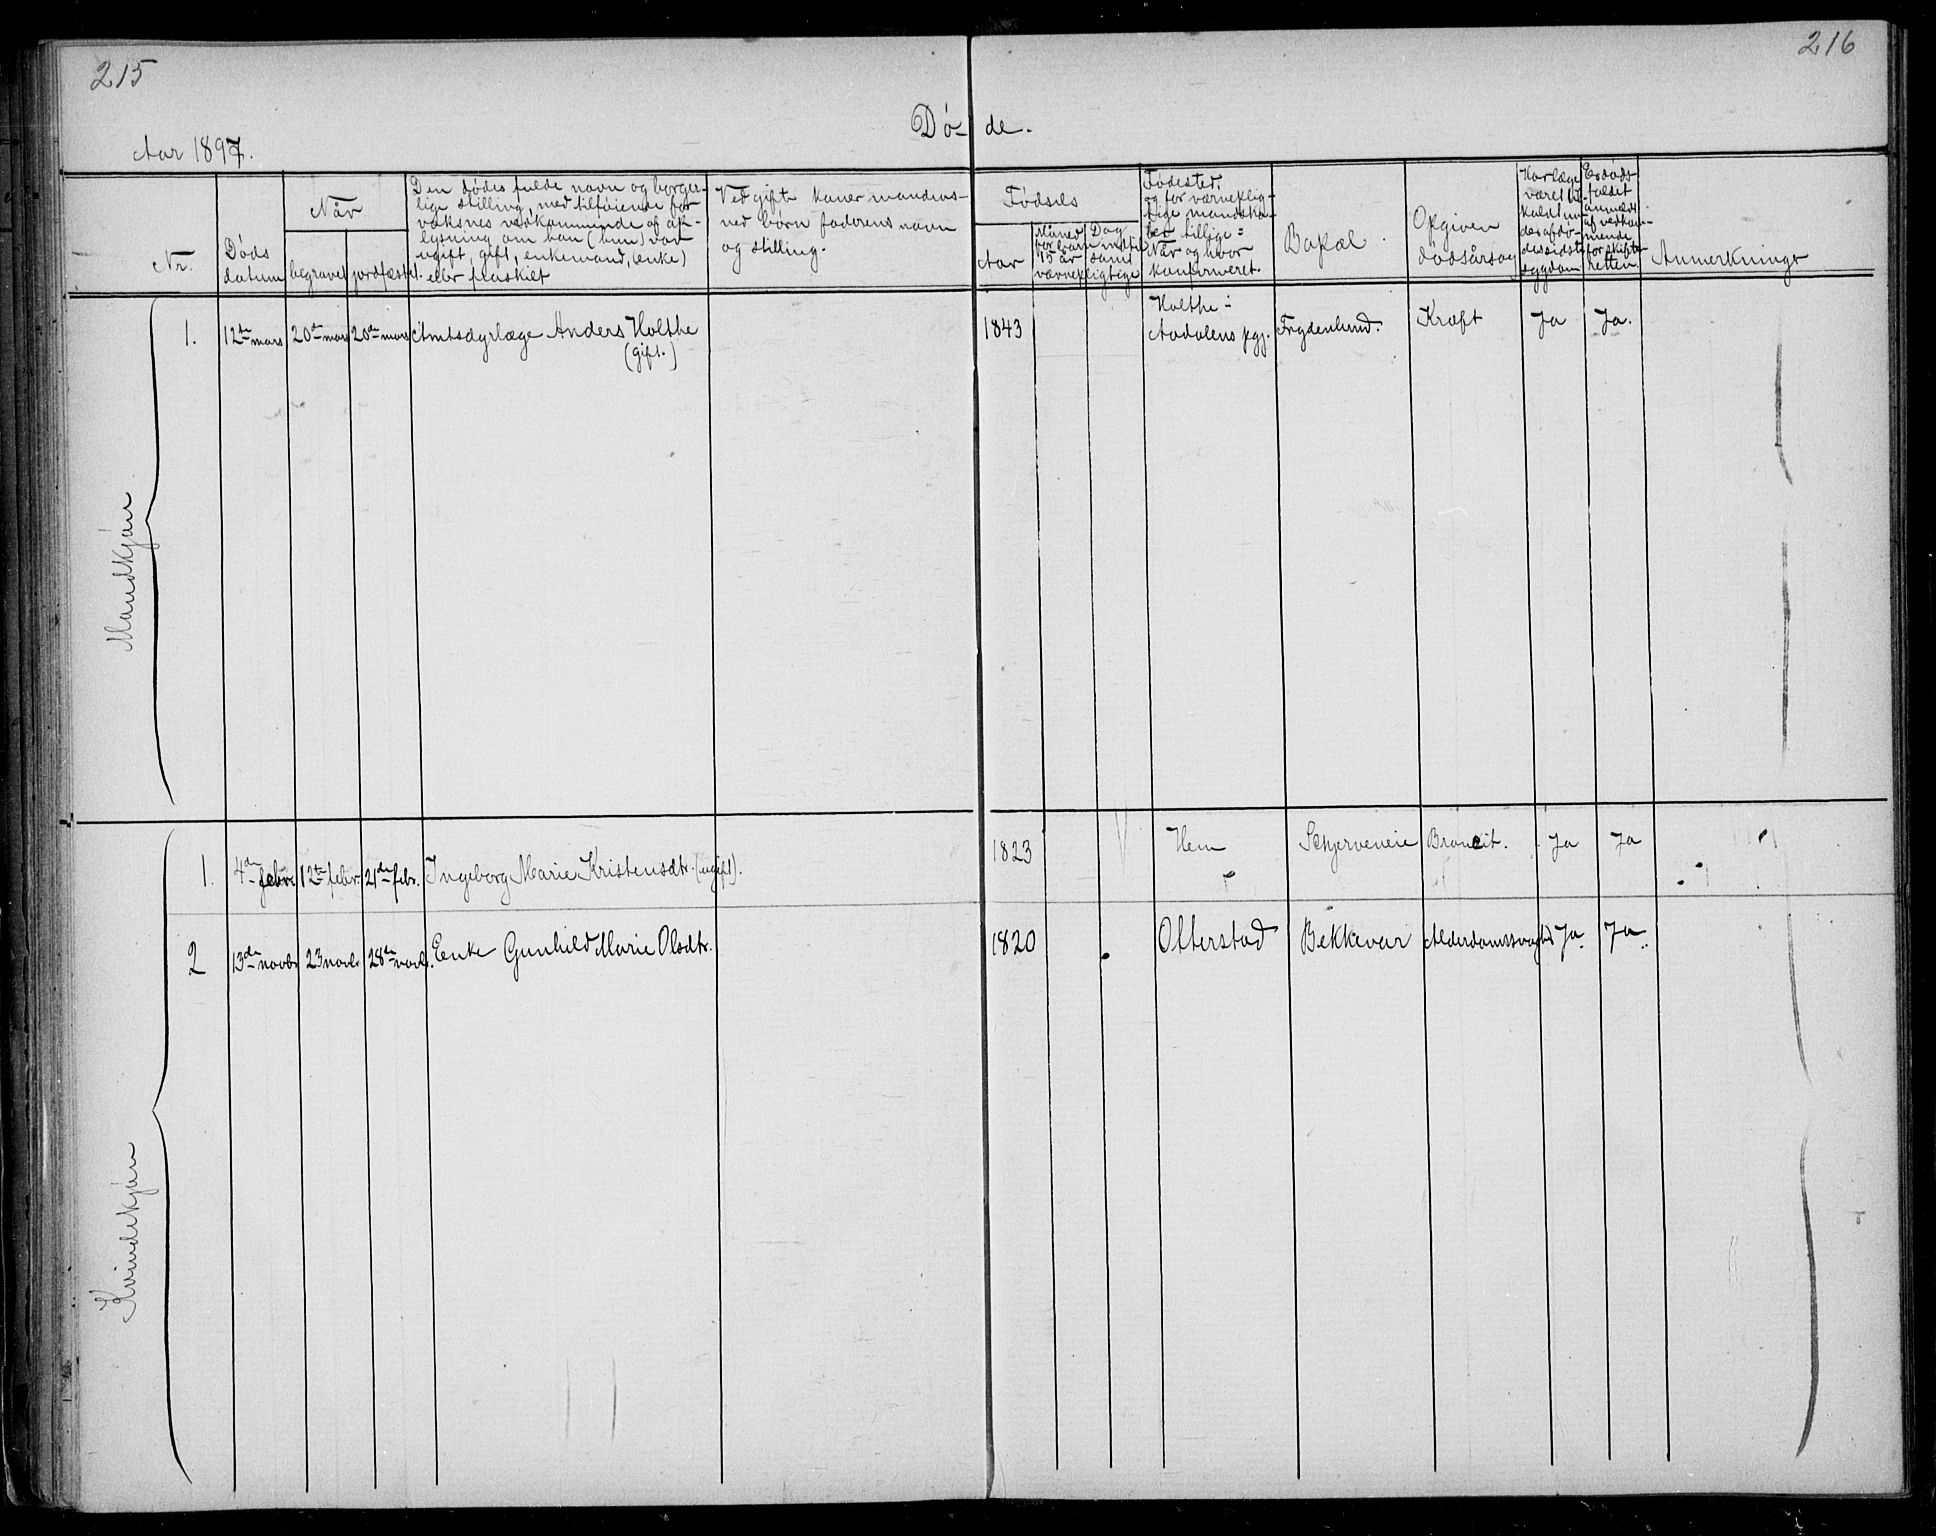 215
216
Dø-de.
Aar 1897.
Nr.
Døds
datum
Når
begravet
jordfæstet.
Den dødes fulde navn og borger-
lige stilling, med tilføiende for
voksnes vedkommende af op-
lysning om han (hun) var
ugift, gift, enkemand, (enke)
eller fraskilt
Ved gifte koner mandens-
ved børn faderens navn
og stilling.
Fødsels
Aar
Måned
for børn indtil
15 år samt
værnepligtige
Dag
Fødested,
og for værneplig-
tige mandska-
ber tillige:
Når og hvor
konfirmeret.
Bopæl.
Opgiven
dødsårsag
Har læge
været til-
kaldt un-
der afdø-
des sidste
sygdom
Er døds-
faldet
anmeldt
af vedkom-
mende
for skifte-
retten.
Anmerkninger
Mandkjøn
1. 12te mars 20de mars 20de mars Amtsdyrlæge Anders Holthe
(gift.)
1843 Holthe i
Aadalens pgj. Frydenlund. Kræft Ja Ja.
Kvindekjøn
1. 4de febr. 12te febr. 21de febr. Ingeborg Marie Kristensdtr. (ugift). 1823 Hem Skjerveneie Ja Ja
2 13de novbr 23 novbr 28de novbr. Enke Gunhild Marie Olsdtr. 1820 Olterstad Bekkevar Alderdomssvaghed Ja. Ja.